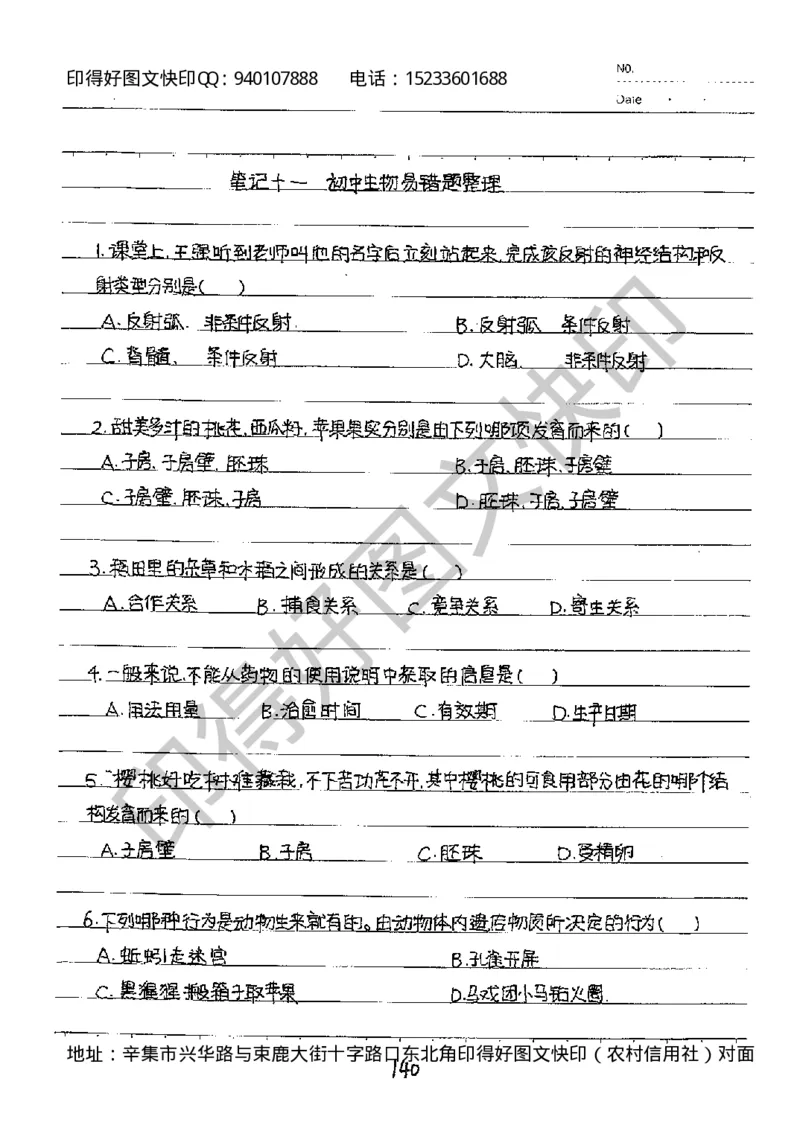 印得好图文快印QQ：940107888 电话：15233601688
No.
Date
笔记十一 初中生物易错题整理
1.课堂上,王强听到老师叫他的名字后立刻站起来,完成该反射的神经结构和反
射类型分别是( )
A.反射弧、非条件反射
B.反射弧、条件反射
C.脊髓、条件反射
D.大脑、非条件反射
2.甜美多汁的桃花,西瓜籽,苹果果实分别是由下列哪项发育而来的( )
A.子房,子房壁,胚珠
B.子房,胚珠,子房壁
C.子房壁,胚珠,子房
D.胚珠,子房,子房壁
3.稻田里的杂草和水稻之间形成的关系是( )
A.合作关系 B.捕食关系 C.竞争关系 D.寄生关系
4.一般来说,不能从药物的使用说明中获取的信息是( )
A.用法用量 B.治愈时间 C.有效期 D.生产日期
5.“樱桃好吃树难栽,不下苦功花不开,其中樱桃的可食用部分由花的哪个结
构发育而来的( )
A.子房壁 B.子房 C.胚珠 D.受精卵
6.下列哪种行为是动物生来就有的。由动物体内遗传物质所决定的行为( )
A.蚯蚓走迷宫
B.孔雀开屏
C.黑猩猩搬箱子取苹果
D.马戏团小马钻火圈
地址：辛集市兴华路与束鹿大街十字路口东北角印得好图文快印（农村信用社）对面
140
印得好图文快印